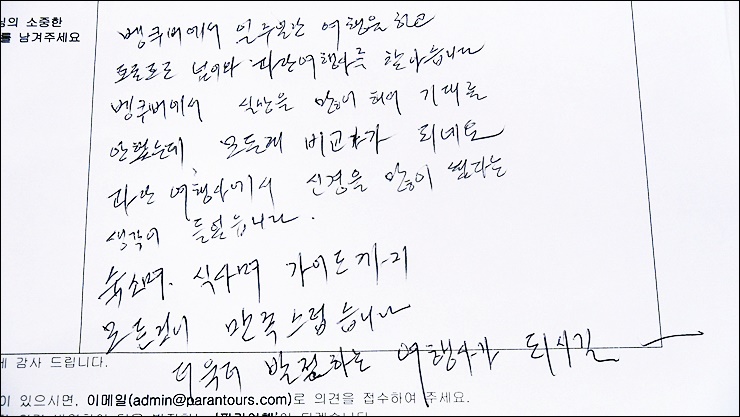 님의 소중한
를 남겨주세요
벵쿠버에서 일주일간 여행을 하고
토론토로 넘어와 파란여행사를 찾아습니다
벵쿠버에서 실망을 많이 하여 기대를
안했는데, 모든게 비교가 되네요
파란 여행사에서 신경을 많이 썼다는
생각이 들었습니다.
숙소며. 식사며 가이드까지
모든것이 만족스럽습니다
더욱더 발전하는 여행사가 되시길 ㅡ
감사 드립니다.
이 있으시면, 이메일(admin@parantours.com)로 의견을 접수하여 주세요.